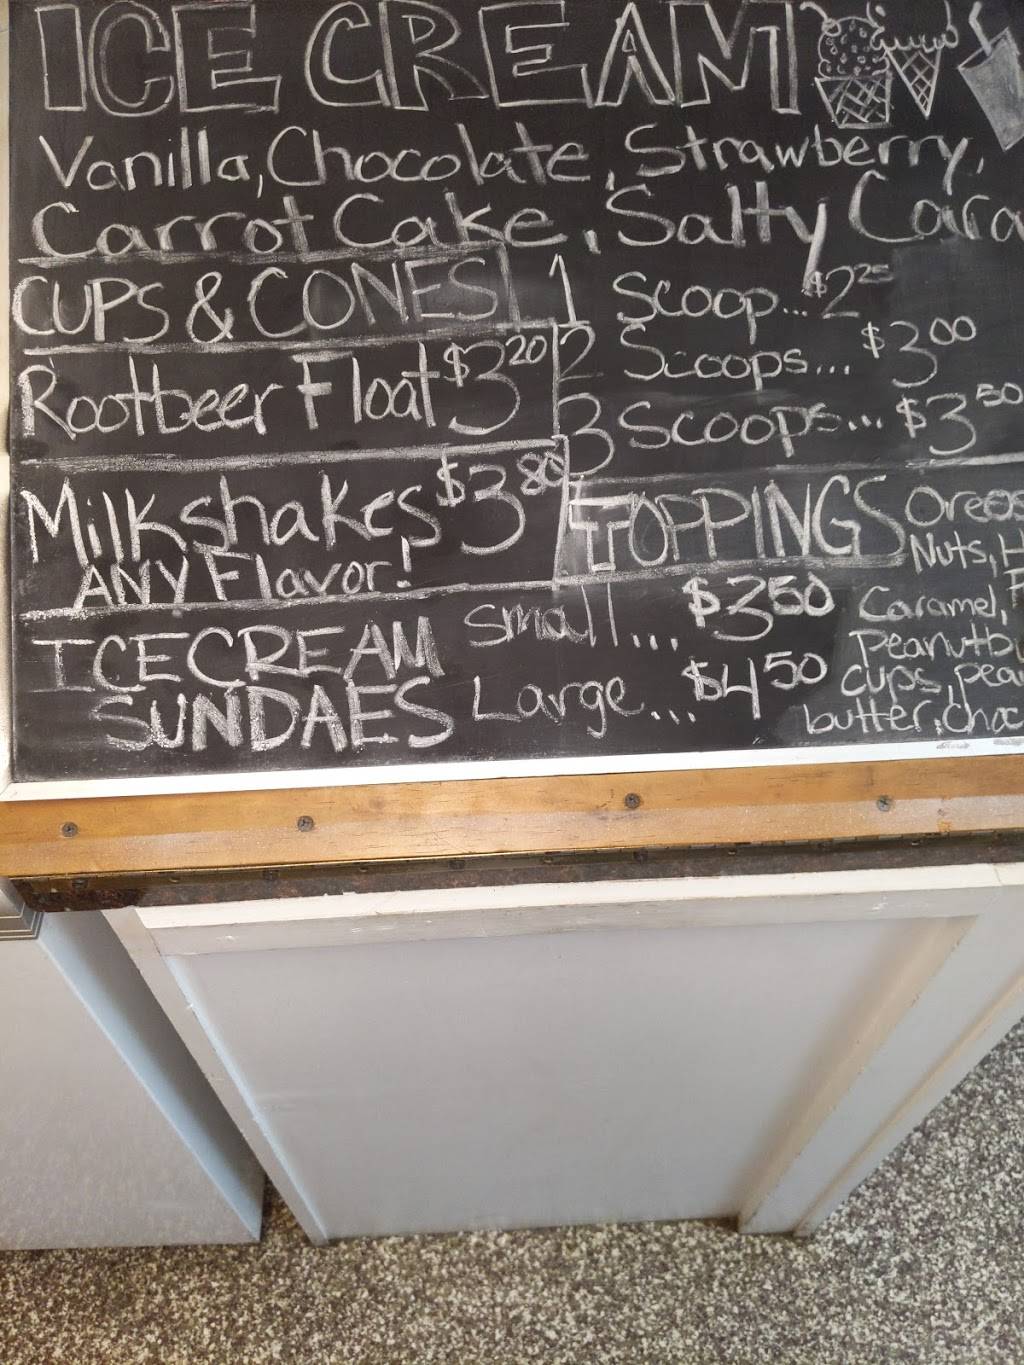 ICE CREAM
Vanilla, Chocolate, Strawberry,
Carrot Cake, Salty Cara
CUPS & CONES
1 Scoop... $2.25
2 Scoops... $3.00
3 Scoops... $3.50
Rootbeer Float $3.20
Milkshakes $3.80
ANY Flavor!
TOPPINGS
Oreos
Nuts, H
Caramel,
Peanutbu
cups, pea
butter, choc
ICECREAM
SUNDAES
Small... $3.50
Large... $4.50